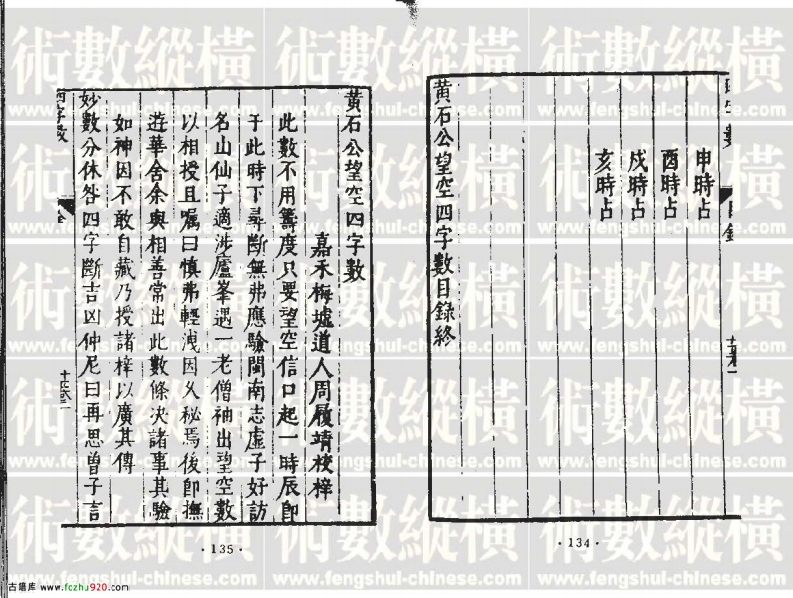 申時占
酉時占
戌時占
亥時占
黃石公望空四字數目錄終
·134·
黃石公望空四字數
嘉禾梅墟道人周履靖校梓
此數不用籌度只要望空信口起一時辰即
于此時下尋斷無弗應驗閩南志虛子好訪
名山仙子適涉廬峯遇一老僧袖出望空數
以相授且囑曰慎弗輕洩因久秘焉後即撫
遊華舍余與相善常出此數條決諸事其驗
如神因不敢自藏乃授諸梓以廣其傳
妙數分休咎四字斷吉凶仲尼曰再思曾子言
·135·
術數縱橫
www.fengshui-chinese.com
古籍库 www.fozhu920.com